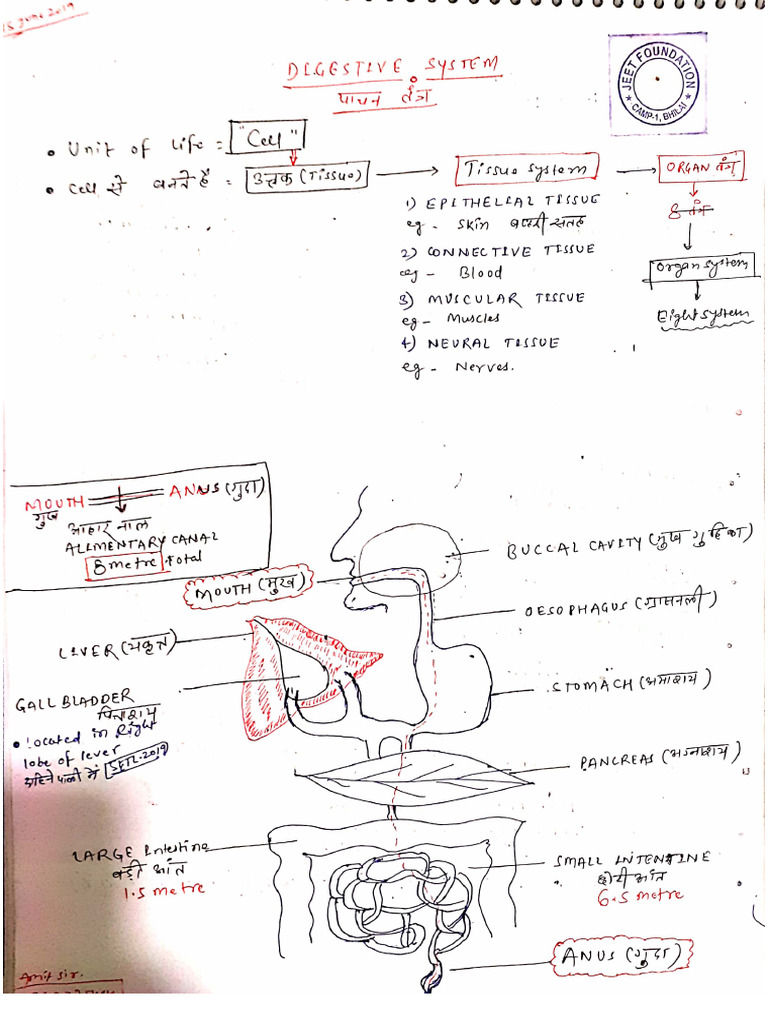 15 June 2019
DIGESTIVE SYSTEM
पाचन तंत्र
JEET FOUNDATION
CAMP-1, BHILAI
• Unit of life = "Cell"
• Cell से बनते हैं = उत्तक (Tissue)
Tissue System
ORGAN तंत्र
1) EPITHELIAL TISSUE
eg - Skin बाहरी सतह
2) CONNECTIVE TISSUE
eg - Blood
3) MUSCULAR TISSUE
eg - Muscles
4) NEURAL TISSUE
eg - Nerves.
8 तंत्र
Organ System
Eight System
MOUTH
मुख
ANUS (गुदा)
आहार नाल
ALIMENTARY CANAL
8 metre Total
MOUTH (मुख)
BUCCAL CAVITY (मुख गुहिका)
OESOPHAGUS (ग्रासनली)
LIVER (यकृत)
STOMACH (आमाशय)
GALL BLADDER
पित्ताशय
• Located in Right
lobe of lever
दाहिने पाली में
PANCREAS (अग्नाशय)
LARGE Intestine
बड़ी आंत
1.5 metre
SMALL INTENTINE
छोटी आंत
6.5 metre
ANUS (गुदा)
Amit Sir.